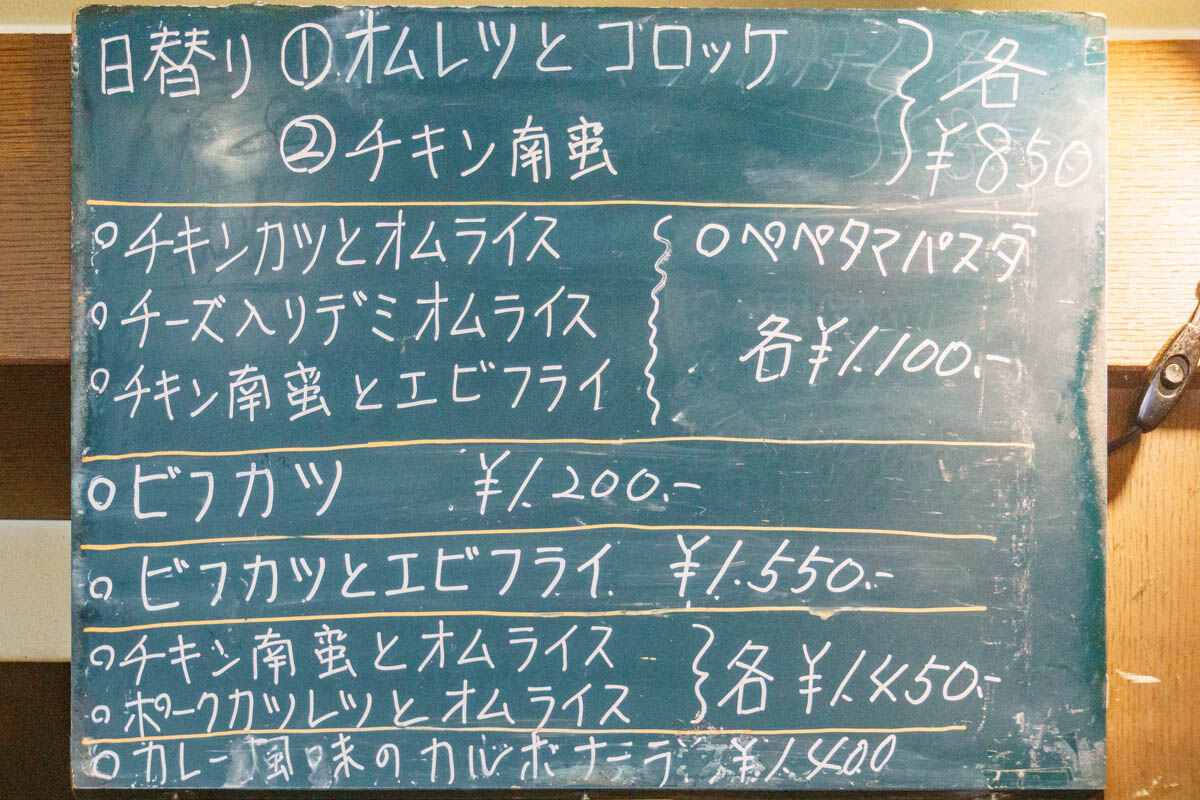 日替り ①オムレツと コロッケ
②チキン南蛮
各
¥850
○チキンカツとオムライス
○チーズ入りデミオムライス
○チキン南蛮とエビフライ
○ペペタマパスタ
各¥1.100.-
○ビフカツ ¥1.200.-
○ビフカツとエビフライ ¥1.550.-
○チキン南蛮とオムライス
○ポークカツレツとオムライス
各 ¥1.450.-
○カレー風味のカルボナーラ ¥1.400